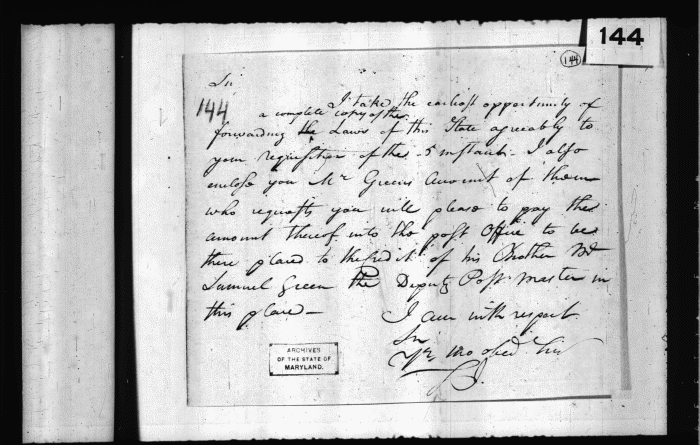 144
144
Sir
144
I take the earliest opportunity of
a complete copy of the
forwarding the Laws of this State agreeably to
your requisition of the 5 instant. I also
enclose you Mr Greens account of them
who requests you will please to pay the
amount thereof into the post Office to be
there placed to the Credit of his Brother Mr
Samuel Green the Deputy Post Master in
this place —
I am with respect
Sir
Yr mo obed
ARCHIVES
OF THE STATE OF
MARYLAND.